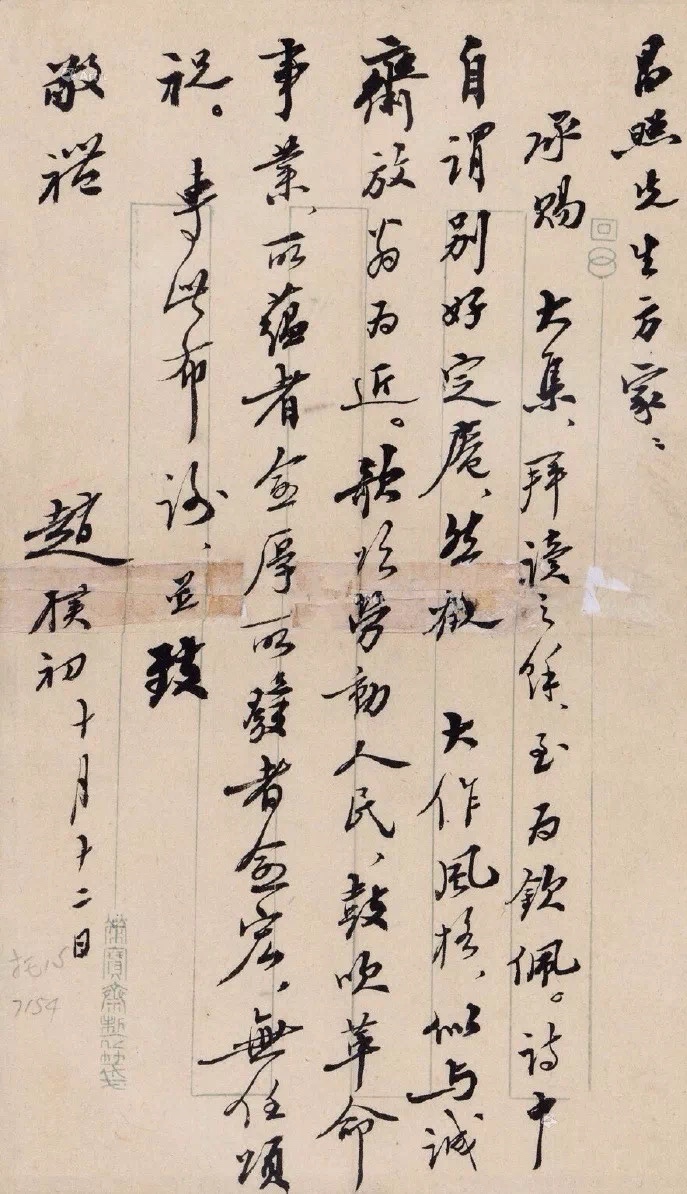 昌照先生方家：
承賜 大集、拜讀之餘、至為欽佩。詩中
自謂別好定庵、然觀 大作風格、似与誠
齋放翁為近。歌頌勞動人民、鼓吹革命
事業、所蘊者愈厚所發者愈宏，無任頌
祝。專此布謝、並致
敬禮
趙樸初 十月十二日
榮寶齋製箋
托15
7154